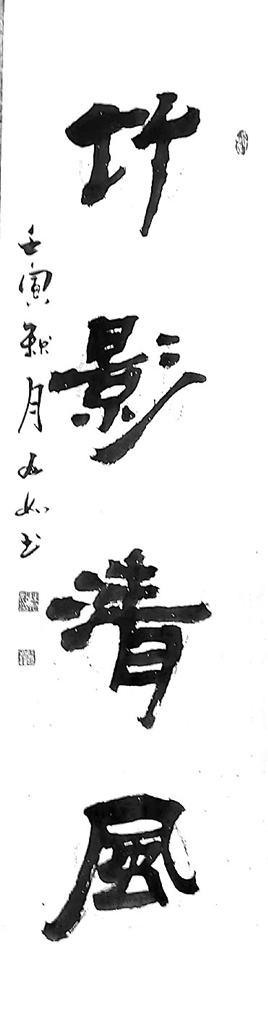 竹影清風
壬寅秋月 如书